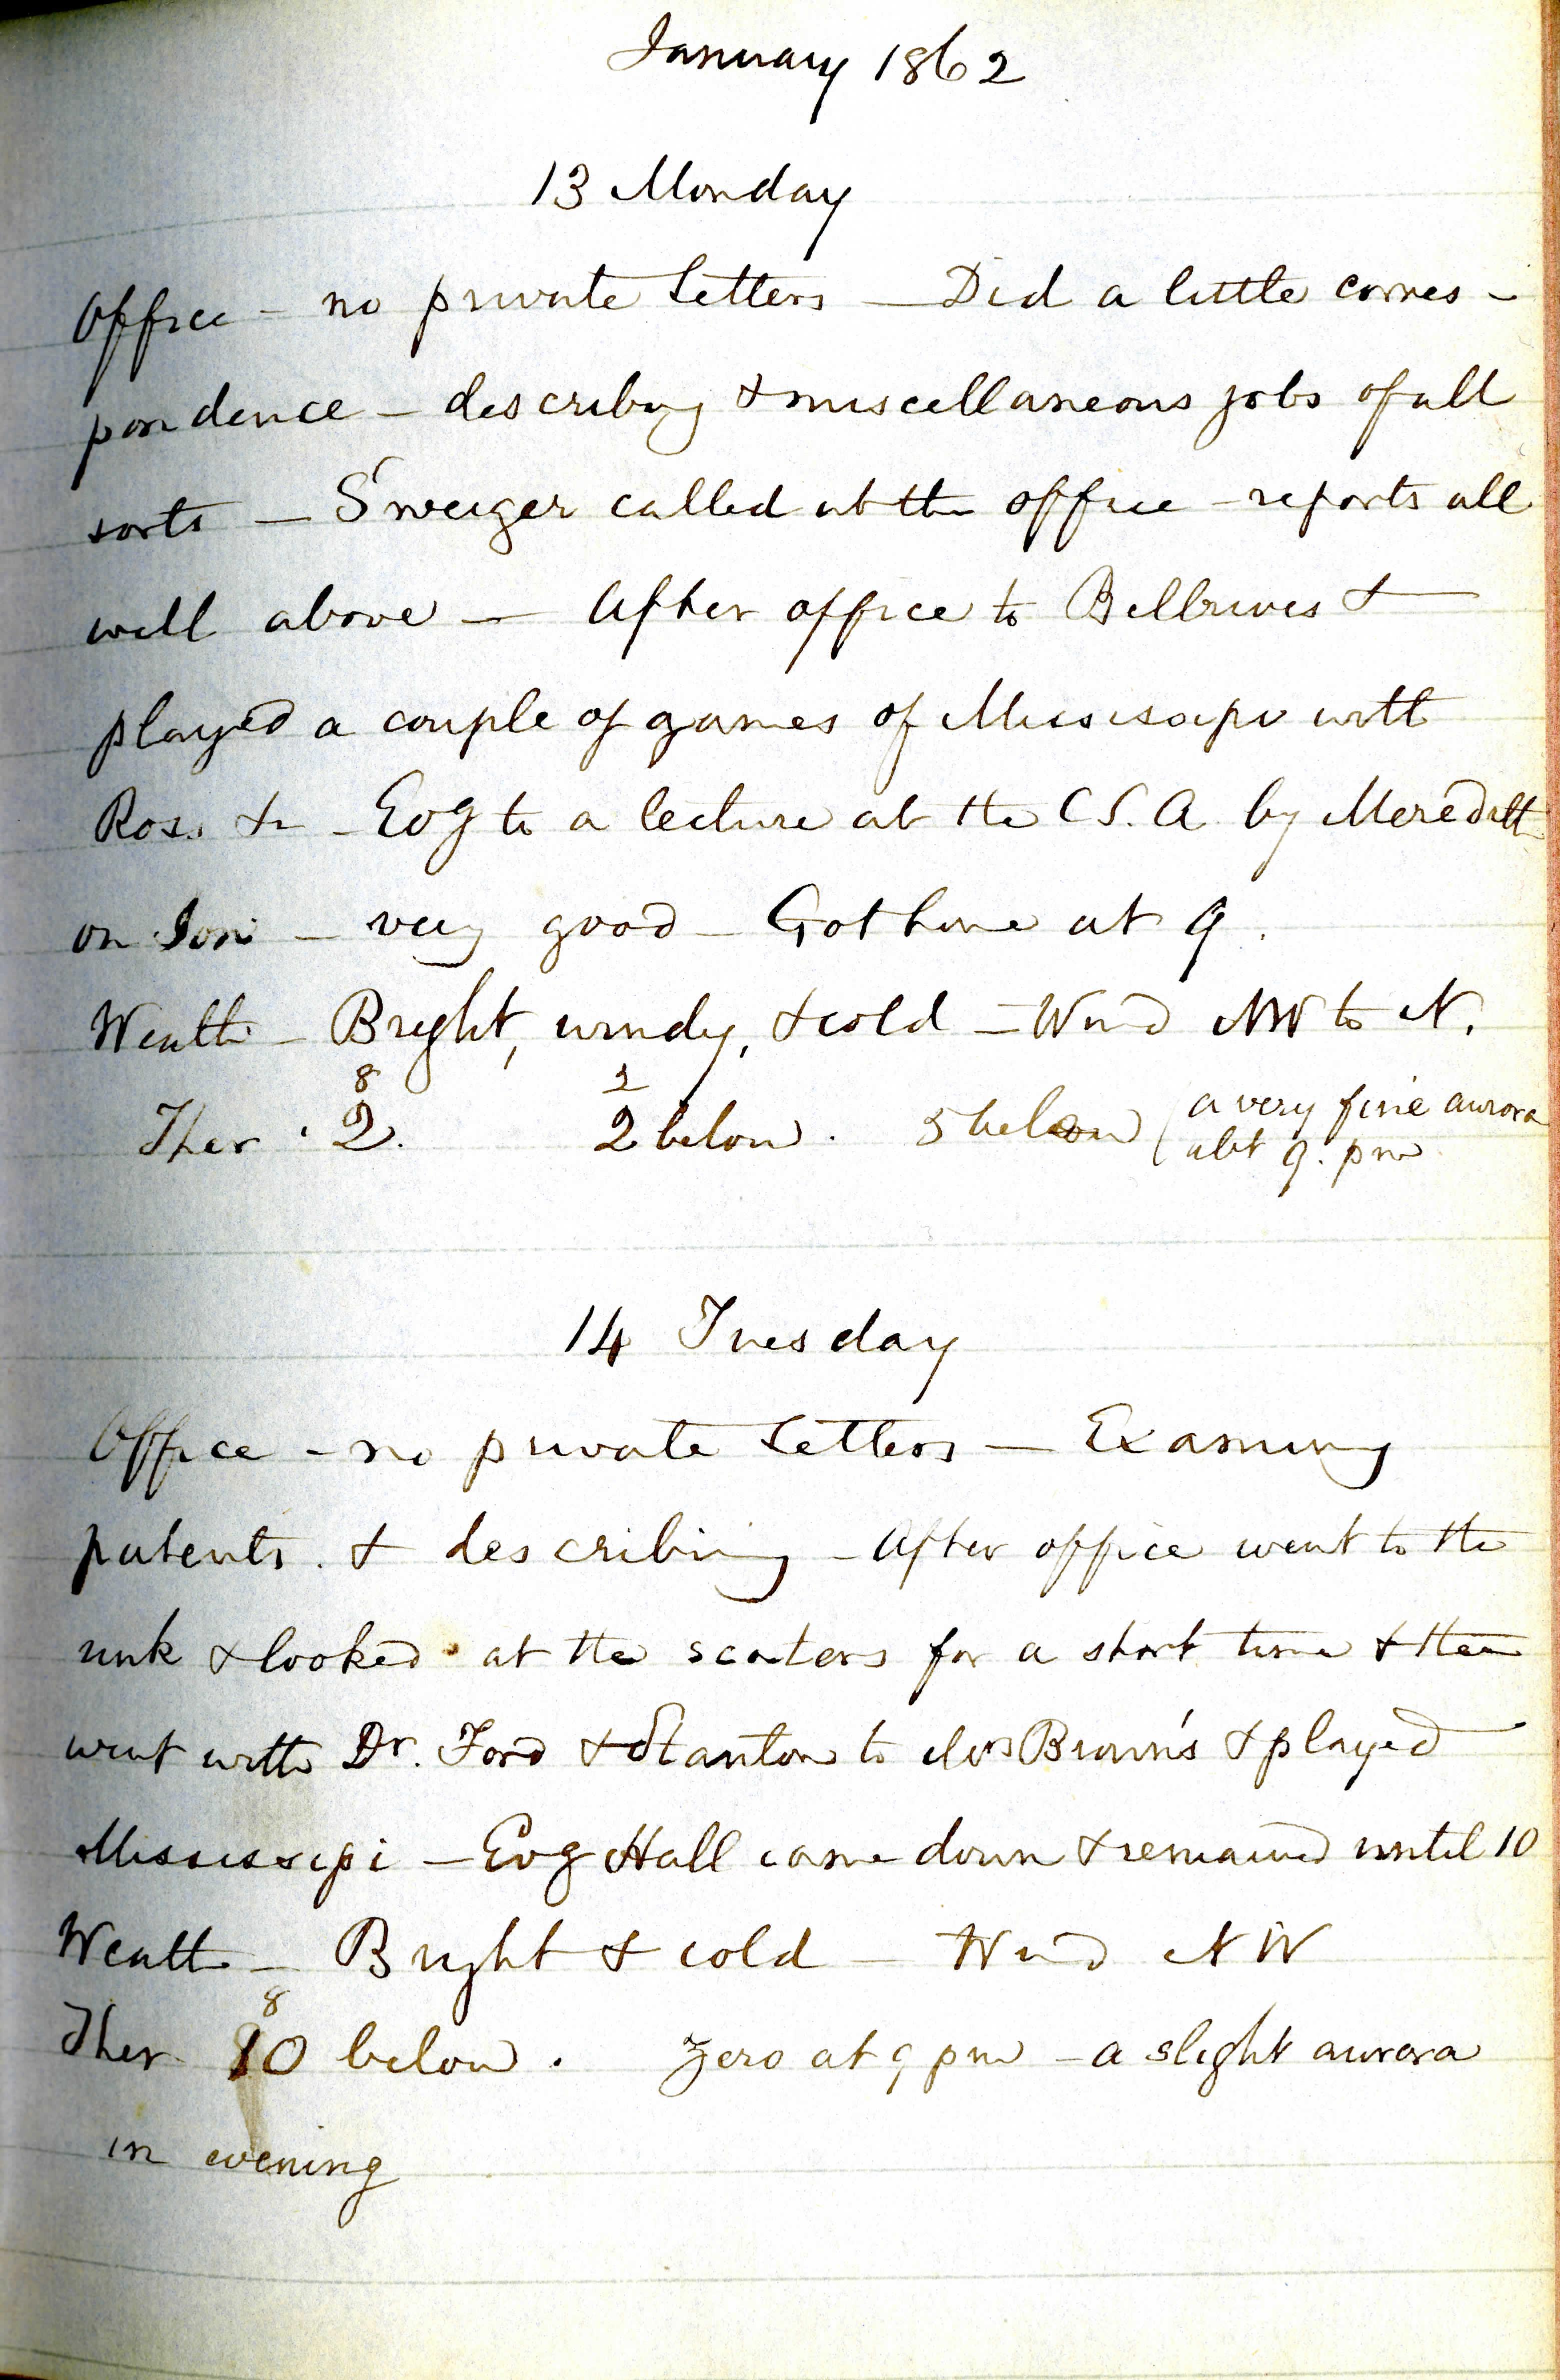 January 1862
13 Monday
Office - no private letters — Did a little corres -
pondence - describing & miscellaneous jobs of all
sorts — called at the office - reports all
well above — After office to &
played a couple of games of Mississipi with
Ross &c - Evg to a lecture at the C.S.A by Meredith
on - very good - Got home at 9.
Weath - Bright, windy, & cold - Wind NW to N.
8 2
Ther. 2. 2 below. 5 below (a very fine aurora
abt 9. pm
14 Tuesday
Office - no private letters — Examing
patents. & describing - After office went to the
rink & looked at the scaters for a short time & then
went with Dr. Ford & Stanton to Mrs Brown's & played
Mississipi - Evg Hall came down & remained until 10
Weath - Bright & cold - Wind NW
8
Ther 10 below. Zero at 9 pm - a slight aurora
in evening